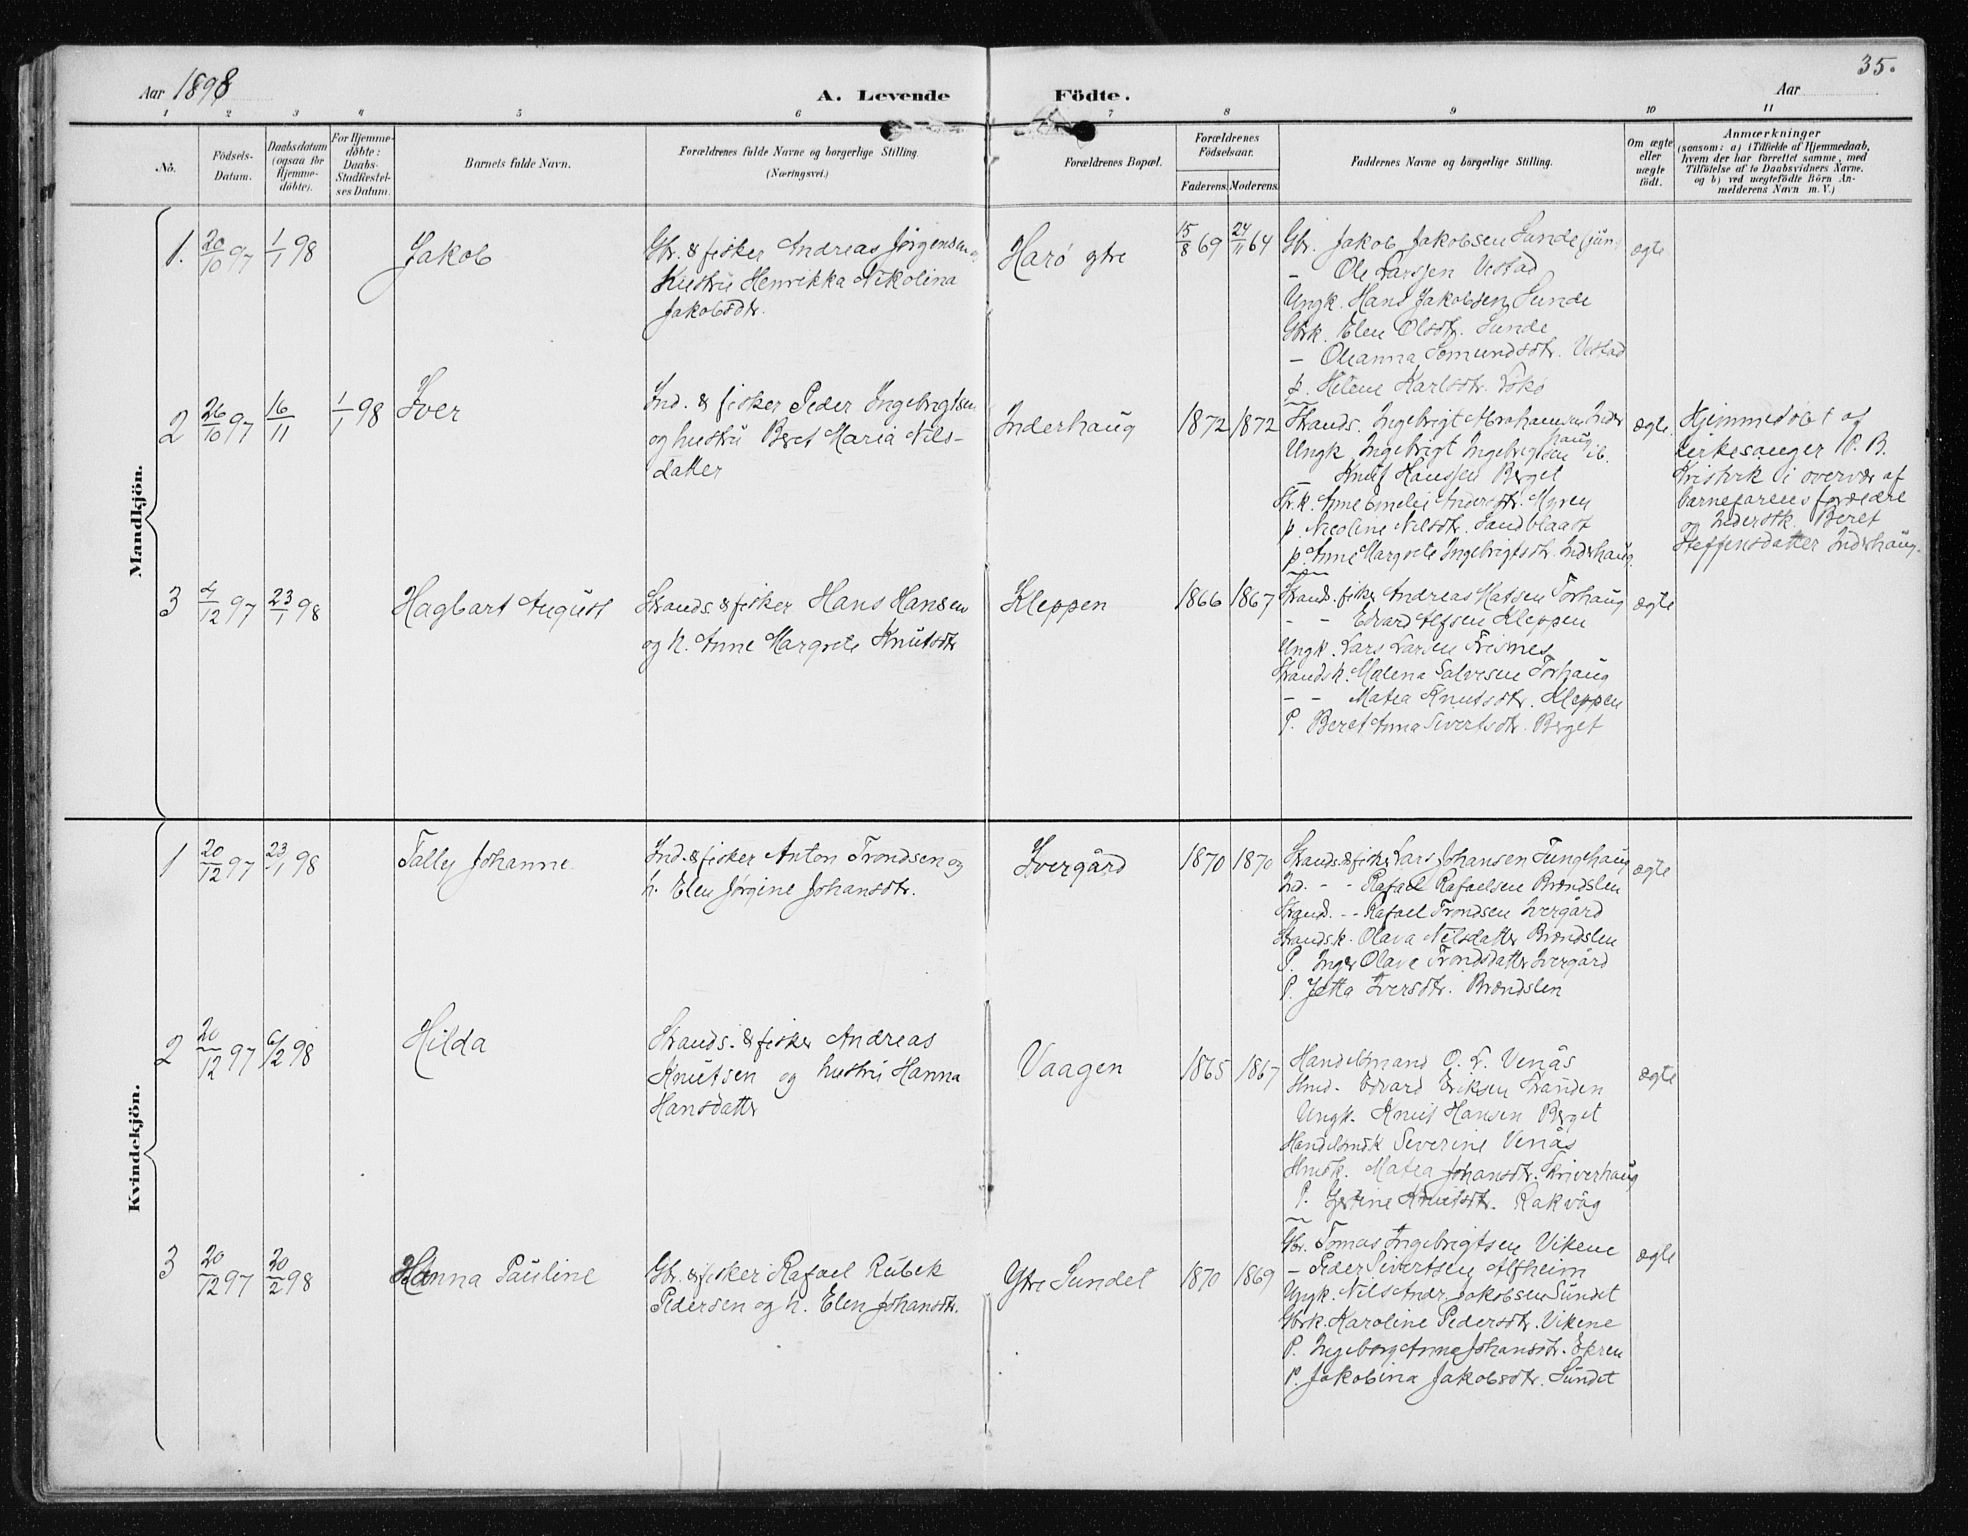 Aar 1898
A. Levende Födte.
Aar
35.
1 2 3 4 5 6 7 8 9 10 11
No.
Födsels-Datum.
Daabsdatum (ogsaa for Hjemme-döbte).
For Hjemme-döbte: Daabs-Stadfæstel-ses Datum.
Barnets fulde Navn.
Forældrenes fulde Navne og borgerlige Stilling.
(Næringsvei.)
Forældrenes Bopæl.
Forældrenes Födselsaar.
Faderens. Moderens.
Faddernes Navne og borgerlige Stilling.
Om ægte eller uægte födt.
Anmærkninger
(saasom: a) i Tilfælde af Hjemmedaab,
hvem der har forrettet samme, med
Tilföielse af to Daabsvidners Navne,
og b) ved uægtefödte Börn An-
melderens Navn m. V.)
Mandkjön.
1. 20/10 97 1/1 98 Jakob
Gbr. & fisker Andreas Jørgensen og
hustru Henrikka Nikolina
Jakobsdtr.
Harø ytre 15/8 69 24/11 64
Gbr. Jakob Jakobsen Sunde (jun)
- Ole Larssen Vestad
Ungk. Hans Jakobsen Sunde
Gbrk. Elen Olsdtr. Sunde
- Oleanna Tomundsdtr. Vestad
p. Helene Karlsdtr. Lokø
ægte
2 26/10 97 16/11 1/1 98 Iver
Ind. & fisker Peder Ingebrigtsen
og hustru Beret Maria Nils-
datter
Inderhaug 1872 1872
Strands. Ingebrigt Abrahamsen Inder
haug
Ungk. Ingebrigt Ingebrigtsen ib.
- Knut Hanssen Berget
Str.k. Anne Emelie Andersdtr. Myren
p. Nicoline Nilsdtr. Sandblaast
p. Anne Margrete Ingebrigtsdtr. Inderhaug
ægte.
Hjemmedøbt af
kirkesanger P. B.
Kristvik i overvær af
barnefarens forældre
og Inderstk. Beret
Steffensdatter Inderhaug.
3 4/12 97 23/1 98 Hagbart August
Strands. & fisker Hans Hansen
og h. Anne Margrete Knutsdtr
Kleppen 1866 1867
Strands. fisker Andreas Matsen Torhaug
- - Edvard Alfsen Kleppen
Ungk. Lars Larsen Trisnes
Strandsk. Malena Salvesen Torhaug
- - Matea Knutsdtr. Kleppen
P. Beret Anna Sivertsdtr. Berget
ægte
Kvindekjön.
1 20/12 97 23/1 98 Tally Johanne
Ind. & fisker Anton Trondsen og
h. Elen Jørgine Johansdtr.
Ivergård 1870 1870
Strands. & fisker Lars Johansen Tungehaug
Ind. - - Rafael Rafaelsen Brændslen
Strand. - - Rafael Trondsen Ivergård
Strandsk. Olava Nilsdatter Brændslen
P. Inger Olave Trondsdatter Ivergård
P. Jetta Iversdtr. Brændslen
ægte
2 20/12 97 6/2 98 Hilda
Strands. & fisker Andreas
Knutsen og hustru Hanna
Hansdatter
Vaagen 1865 1867
Handelsmand O. T. Venås
Hmd. Edvard Eriksen Stranden
Ungk. Knut Hansen Berget
Handelsmdk Severine Venås
Hmdk. Matea Johansdtr. Skriverhaug
P. Gjertine Knutsdtr. Rakvåg
ægte
3 20/12 97 20/2 98 Hanna Pauline
Gbr. & fisker Rafael Rubek
Pedersen og h. Elen Johansdtr.
Ytre Sundet 1870 1869
Gbr. Tomas Ingebrigtsen Vikene
- Peder Sivertsen Alfheim
Ungk. Nils Andr. Jakobsen Sundet
Gbrk. Karoline Pedersdtr. Vikene
P. Ingeborg Anna Johansdtr. Ekren
P. Jakobina Jakobsdtr. Sundet
ægte